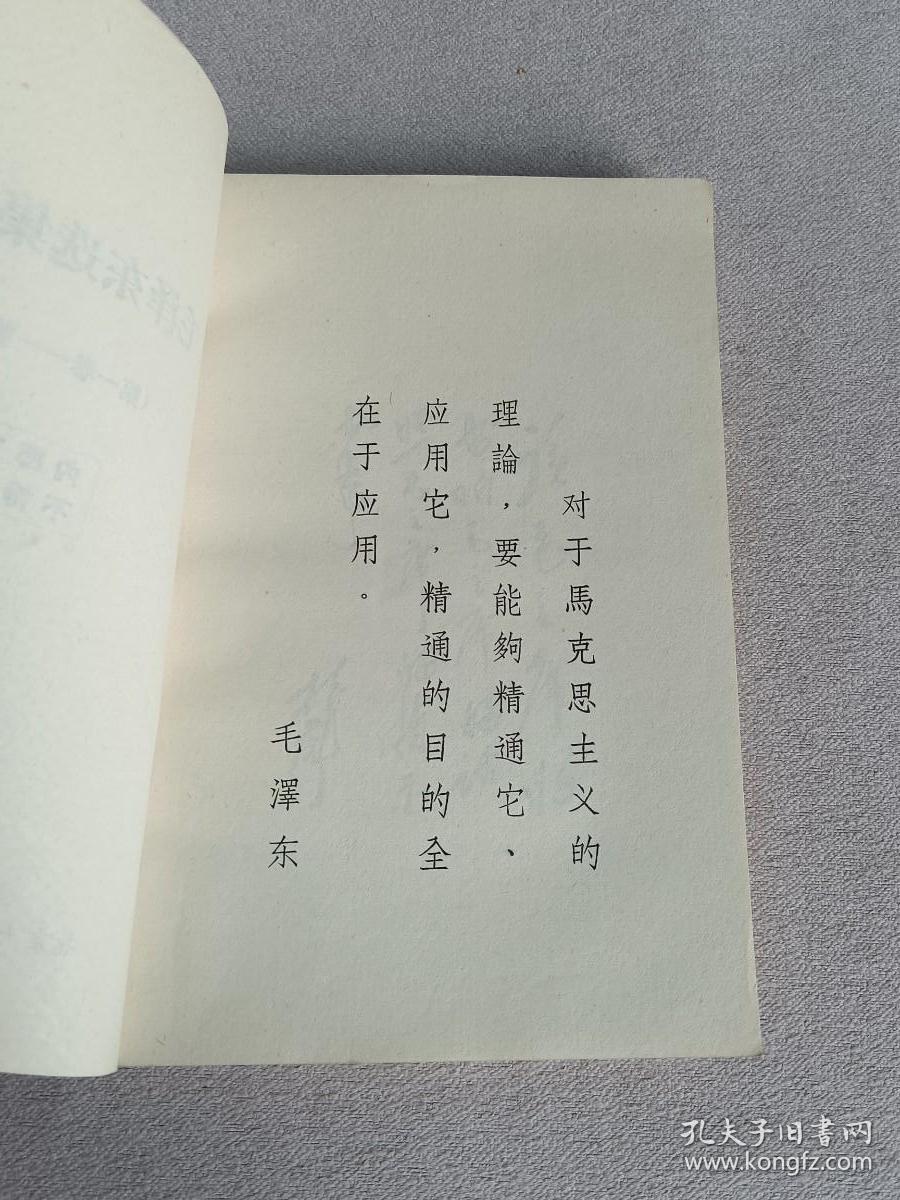 对于馬克思主义的
理論，要能夠精通它、
应用它，精通的目的全
在于应用。
毛澤东
孔夫子旧書网
www.kongfz.com